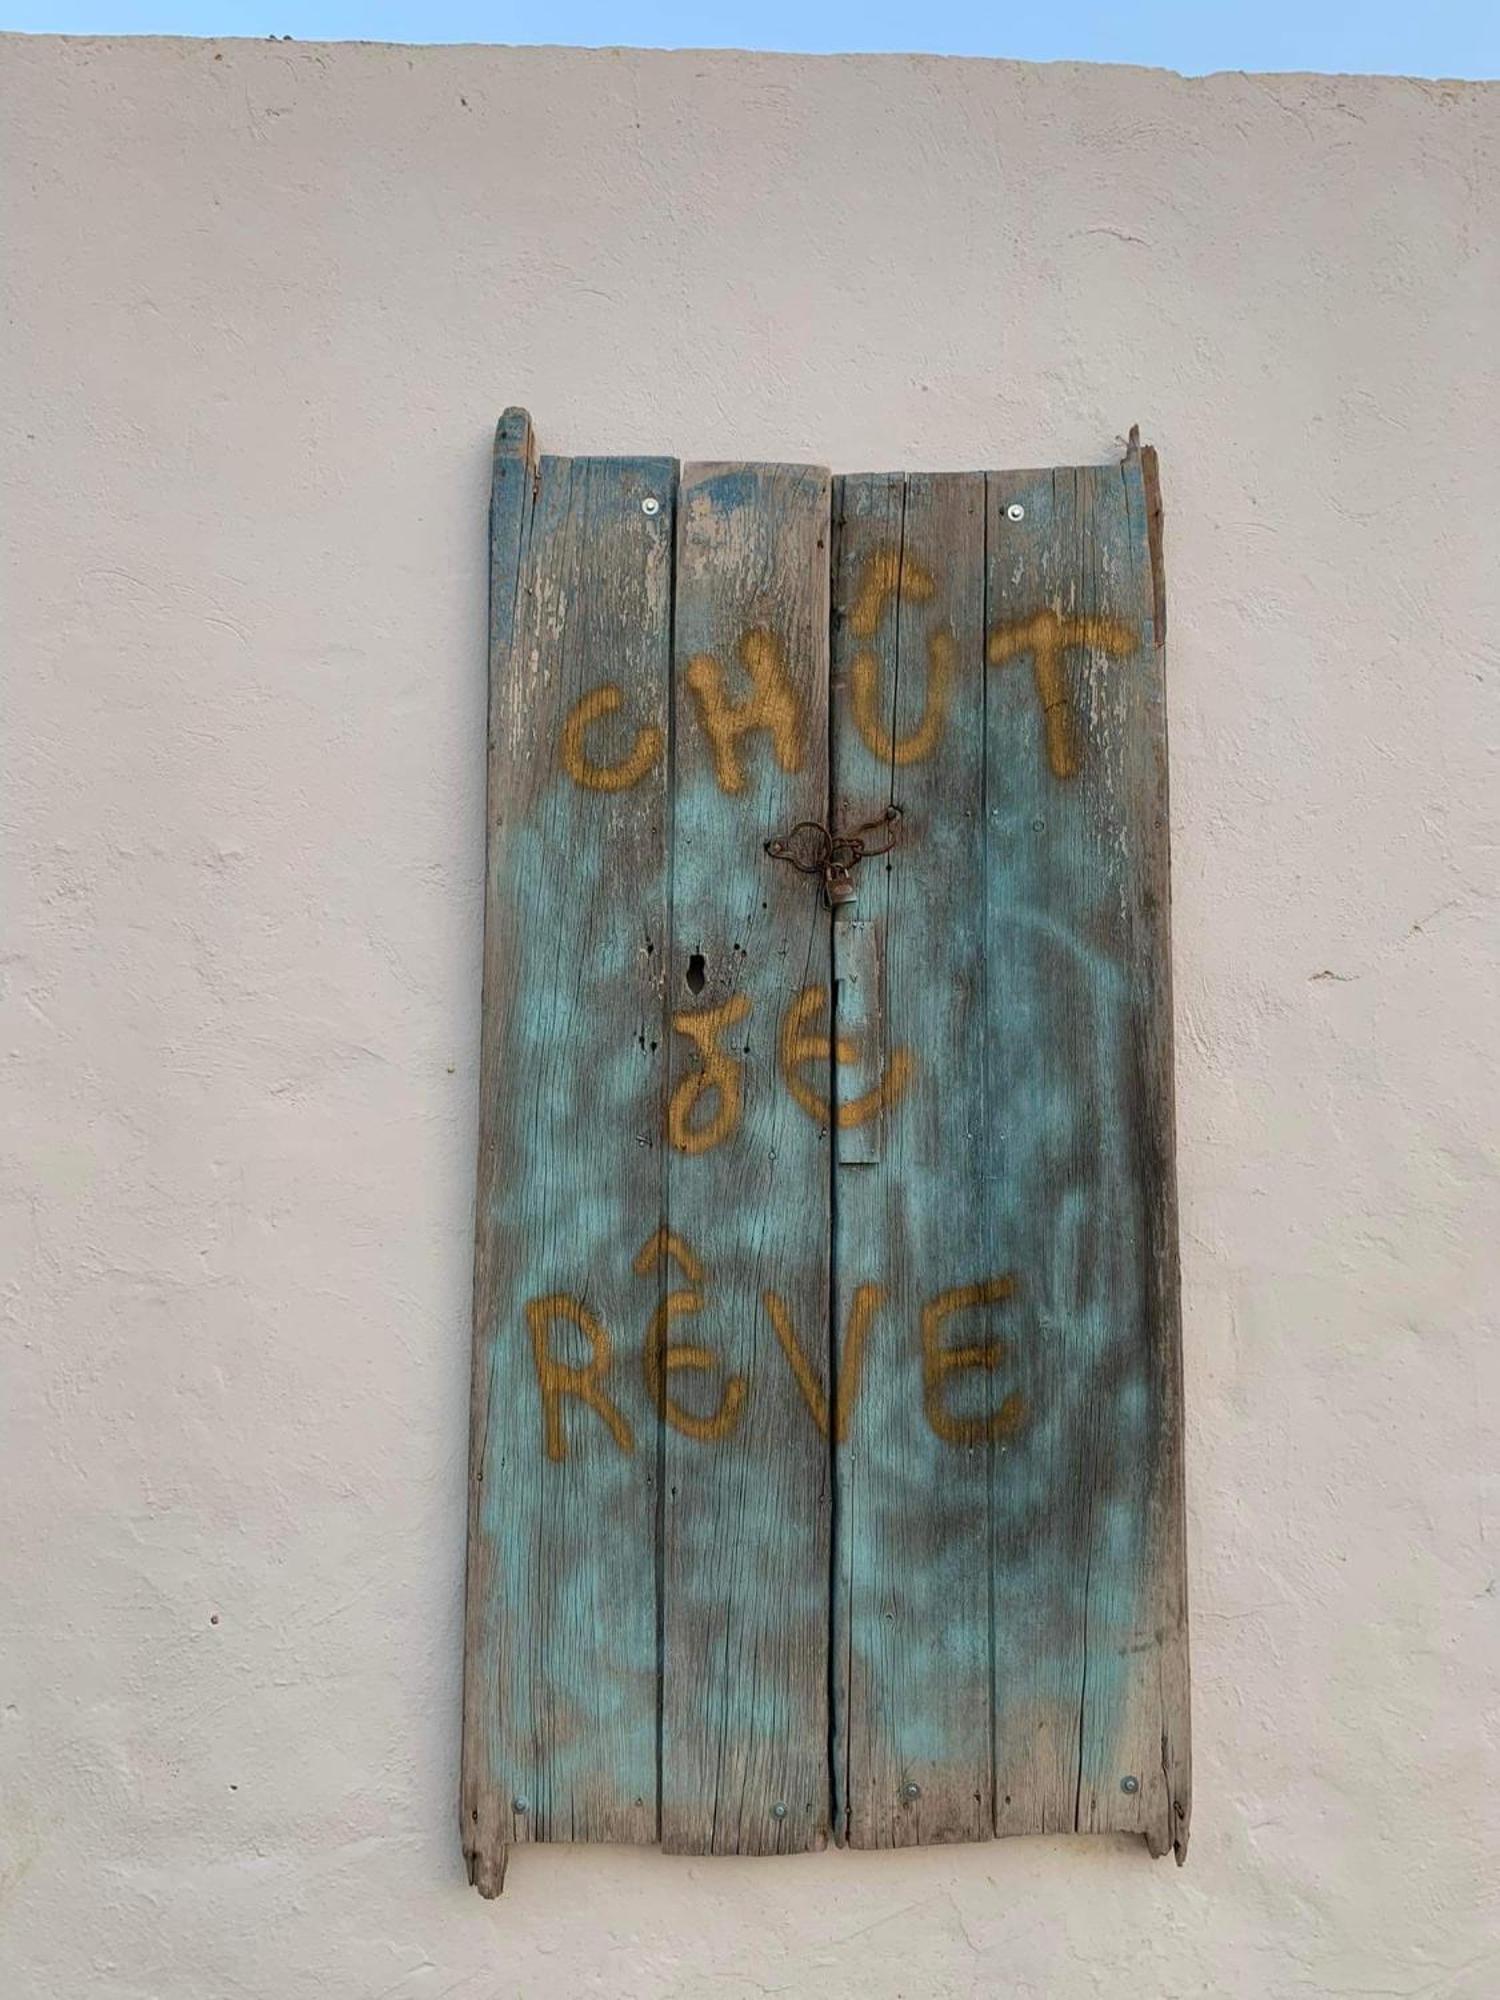 CHÛT
JE
RÊVE